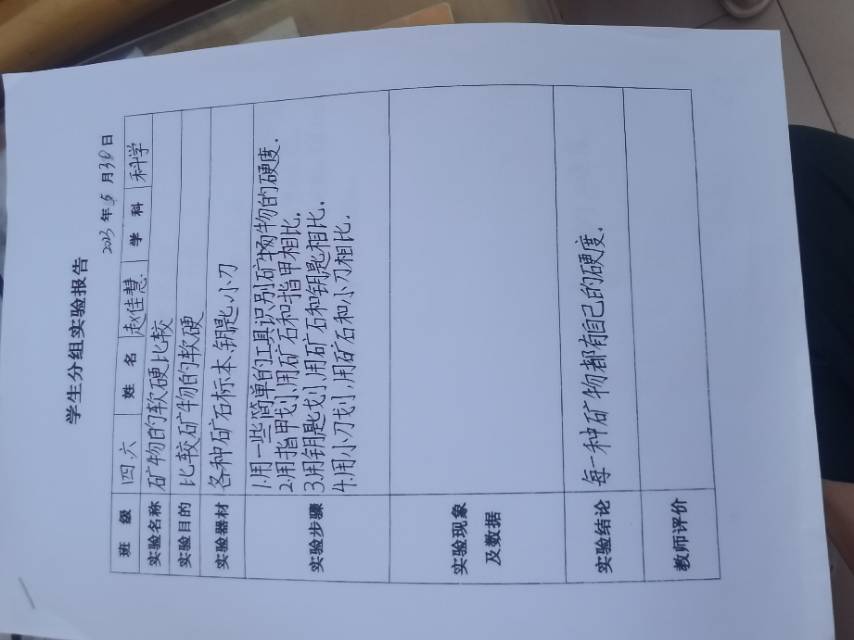 学生分组实验报告
2023年5月30日
班级 四六 姓名 赵佳慧. 学科 科学
实验名称 矿物的软硬比较
实验目的 比较矿物的软硬
实验器材 各种矿石标本、钥匙、小刀
实验步骤
1.用一些简单的工具识别矿物的硬度.
2.用指甲划,用矿石和指甲相比.
3.用钥匙划,用矿石和钥匙相比.
4.用小刀划,用矿石和小刀相比.
实验现象
及数据
实验结论 每一种矿物都有自己的硬度.
教师评价